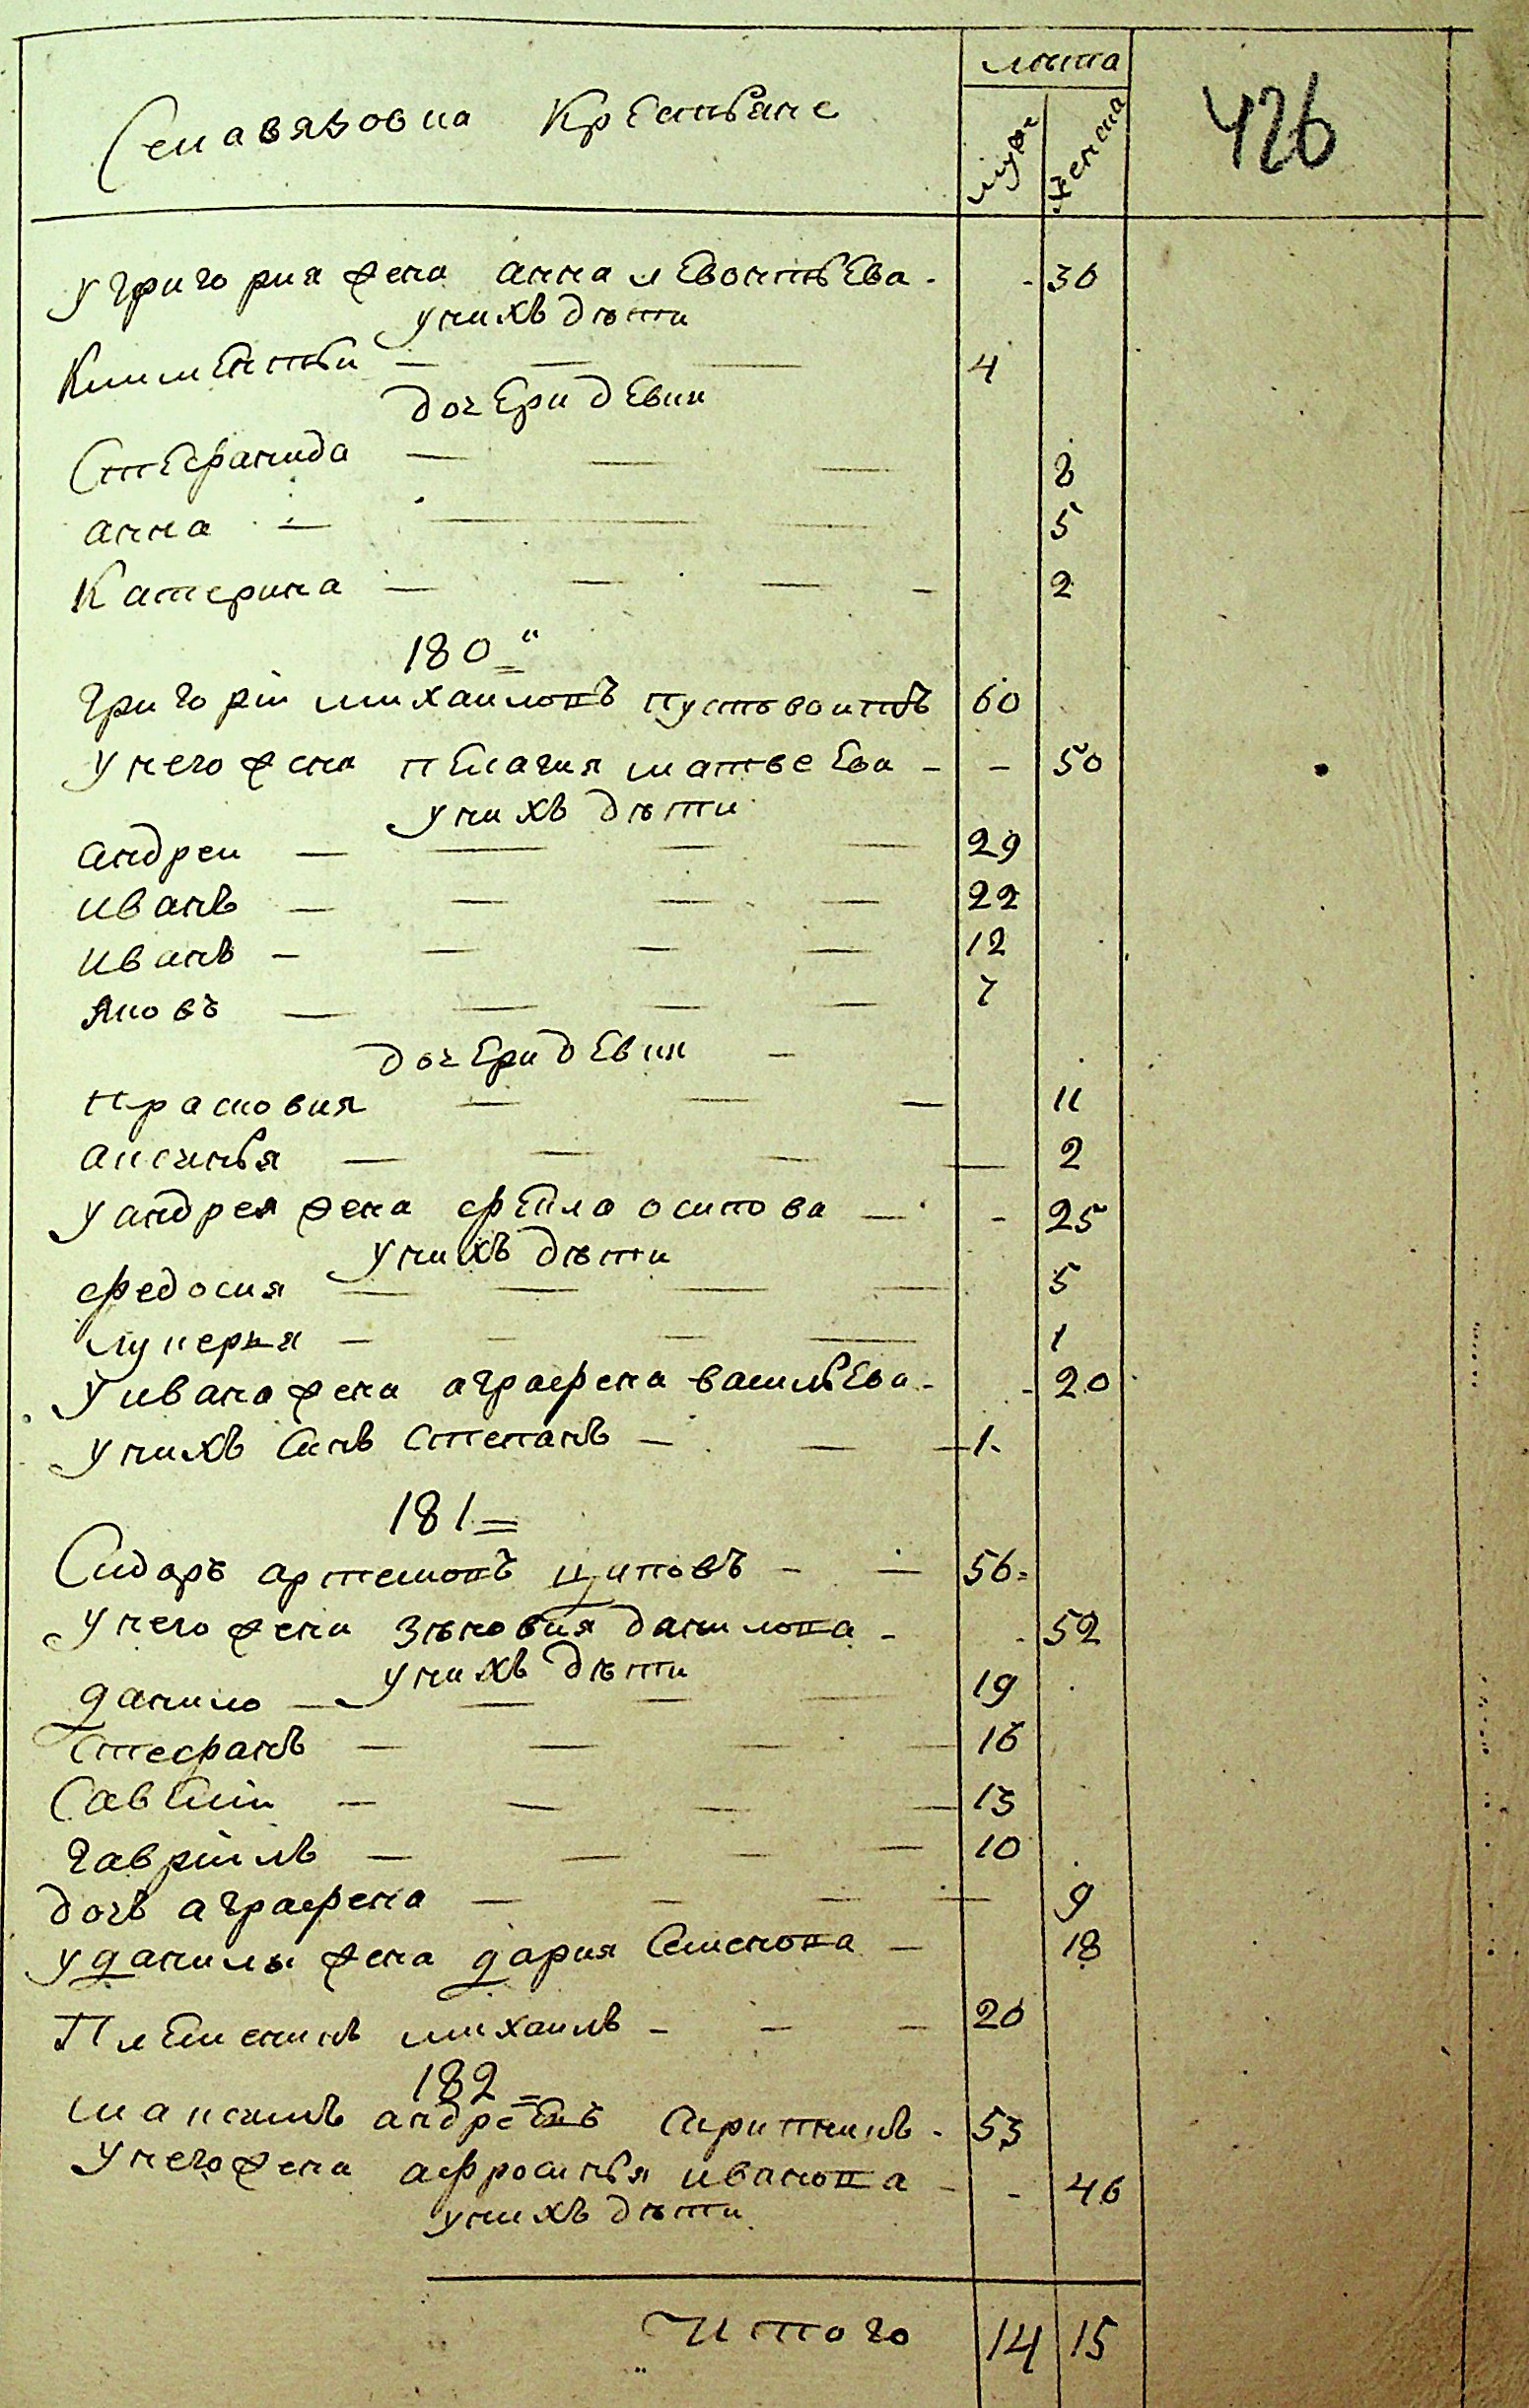 Села вязовка Крестьяне
лѣта
муже
женска
426
у григория жена анна левонтьева - - 30
у них дѣти
Климентьи - 4
дочери девки
Стефанида - 8
анна - 5
Катерина - 2
180
григорій михаиловъ пустовоитовъ 60
у него жена пелагия матвеева - - 50
у нихъ дѣти
андреи - 29
иванъ - 22
иванъ - 12
яковъ - 7
дочери девки -
прасковия - 11
аксинья - 2
у андрея жена фекла осипова - - 25
у нихъ дѣти
федосия - 5
лукерья - 1
у ивана жена аграфена васильева - - 20
у нихъ синъ степанъ - 1
181
Сидоръ артемовъ циповъ - 56
у него жена зѣновия данилова - - 52
у нихъ дѣти
данило - 19
стефанъ - 16
Савелій - 13
гавріилъ - 10
дочь аграфена - 9
у данилы жена дария семенова - 18
Племеникъ михаилъ - 20
182
максимъ андреевъ скрипникъ - 53
у него жена афросинья иванова - - 46
у нихъ дѣти
Итого 14 15